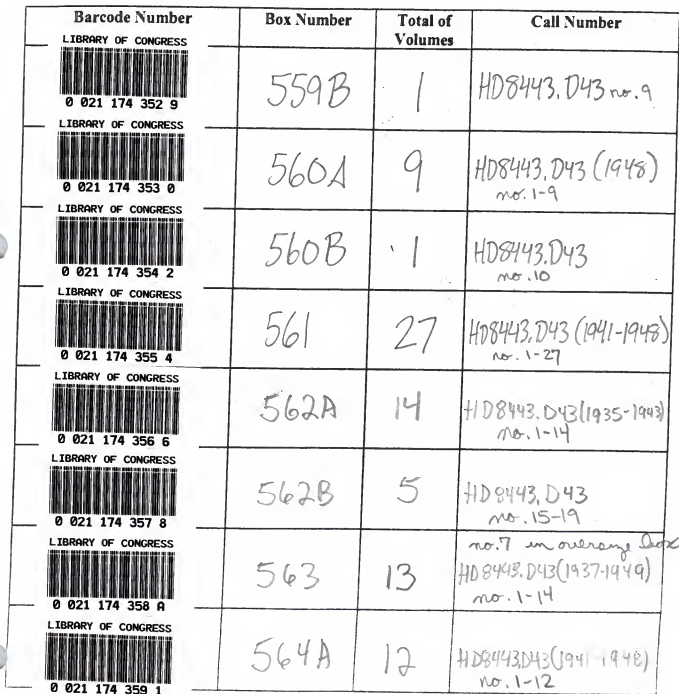 Barcode Number Box Number Total of Volumes Call Number
LIBRARY OF CONGRESS
0 021 174 352 9
559B 1 HD8443.D43 no. 9
LIBRARY OF CONGRESS
0 021 174 353 0
560A 9 HD8443.D43 (1948)
no. 1-9
LIBRARY OF CONGRESS
0 021 174 354 2
560B 1 HD8443.D43
no. 10
LIBRARY OF CONGRESS
0 021 174 355 4
561 27 HD8443.D43 (1941-1948)
no. 1-27
LIBRARY OF CONGRESS
0 021 174 356 6
562A 14 HD8443.D43 (1935-1943)
no. 1-14
LIBRARY OF CONGRESS
0 021 174 357 8
562B 5 HD8443.D43
no. 15-19
LIBRARY OF CONGRESS
0 021 174 358 A
563 13 no. 7 in oversize box
HD8443.D43 (1937-1949)
no. 1-14
LIBRARY OF CONGRESS
0 021 174 359 1
564A 12 HD8443.D43 (1941-1948)
no. 1-12